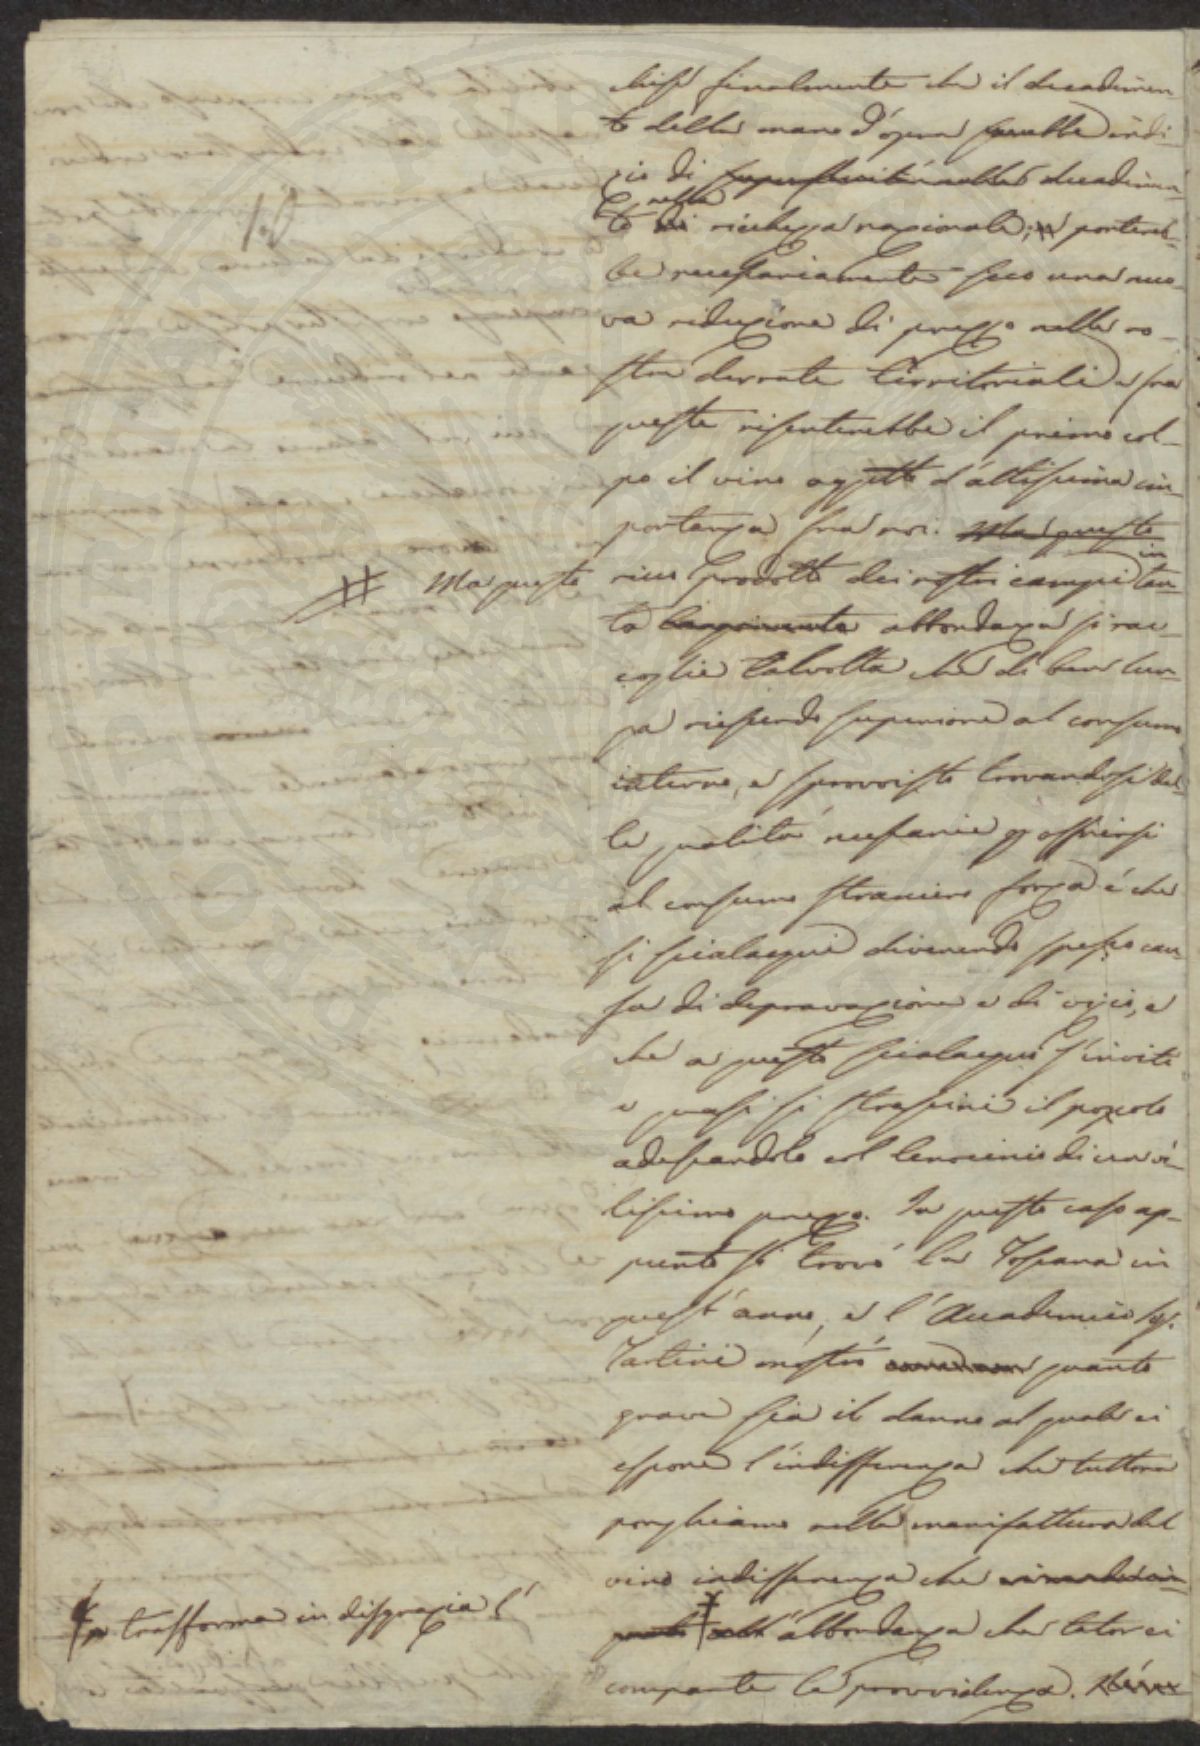 chisi finalmente che il decadimen
to della mano d'opera sarebbe indi-
zio di superfluità nella decadimen-
to di nella richezza nazionale; e portereb-
be necessariamente seco una nuo-
va riduzione di prezzo nelle no-
stre derrate territoriali e fra
queste risentirebbe il primo col-
po il vino oggetto d'altissima im-
portanza fra noi. Ma questo
# Ma questo
ricco prodotto dei nostri campi in tan-
ta abbondanza si rac-
coglie talvolta che di ben lun-
ga riesciendo superiore al consumo
interno, e sprovvisto trovandosi del-
le qualità necessarie p offrirsi
al consumo straniero forza è che
si scialacqui divenendo spesso cau
sa di depravazione e di vizio, e
che a questo scialacquo s'inviti
e quasi si strascini il popolo
adescandolo col lenocinio di un vi-
lissimo prezzo. In questo caso ap-
punto si trovò la Toscana in
quest'anno, e l'Accademico Sig.
Tartini mostrò quanto
grave sia il danno al quale ci
espone l'indifferenza che tuttora
porghiamo nella manifattura del
vino indifferenza che
# trasforma in disgrazia l'
abbondanza che talor ci
comparte la provvidenza.